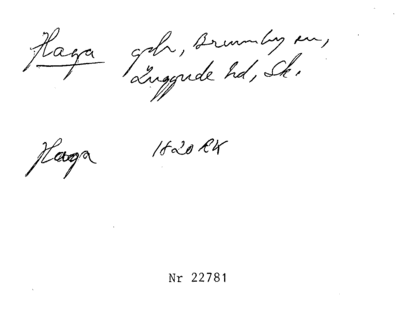 Haga gdr, Brunnby sn,
Luggude hd, Sk.
Haga 1820 RK
Nr 22781